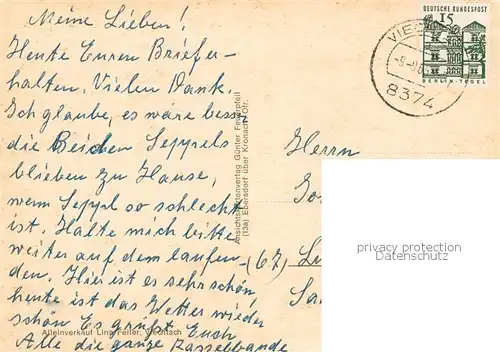 Meine Lieben!
Heute Euren Brief er-
halten. Vielen Dank.
Ich glaube, es wäre besser
die Beiden Seppels
blieben zu Hause,
wenn Seppl so schlecht
ist. Halte mich bitte
weiter auf dem laufen-
den. Hier ist es sehr schön,
heute ist das Wetter wieder
schön Es grüßt Euch
Alle die ganze Rasselbande
Alleinverkauf Lina Feiler, Viechtach
Ansichtskartenverlag Günter Feuerpfeil
(13a) Ebersdorf über Kronach/Ofr.
DEUTSCHE BUNDESPOST
15
BERLIN-TEGEL
VIE
8374
Herrn
(67)
privacy protection
Datenschutz